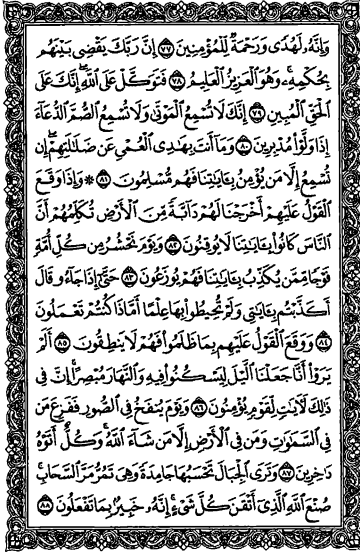 وَإِنَّهُۥ لَهُدًى وَرَحْمَةٌ لِّلْمُؤْمِنِينَ ٧٧ إِنَّ رَبَّكَ يَقْضِى بَيْنَهُم
بِحُكْمِهِۦ وَهُوَ ٱلْعَزِيزُ ٱلْعَلِيمُ ٧٨ فَتَوَكَّلْ عَلَى ٱللَّهِ إِنَّكَ عَلَى
ٱلْحَقِّ ٱلْمُبِينِ ٧٩ إِنَّكَ لَا تُسْمِعُ ٱلْمَوْتَىٰ وَلَا تُسْمِعُ ٱلصُّمَّ ٱلدُّعَآءَ
إِذَا وَلَّوْا۟ مُدْبِرِينَ ٨٠ وَمَآ أَنتَ بِهَٰدِى ٱلْعُمْىِ عَن ضَلَٰلَتِهِمْ إِن
تُسْمِعُ إِلَّا مَن يُؤْمِنُ بِـَٔايَٰتِنَا فَهُم مُّسْلِمُونَ ٨١ ۞ وَإِذَا وَقَعَ
ٱلْقَوْلُ عَلَيْهِمْ أَخْرَجْنَا لَهُمْ دَآبَّةً مِّنَ ٱلْأَرْضِ تُكَلِّمُهُمْ أَنَّ
ٱلنَّاسَ كَانُوا۟ بِـَٔايَٰتِنَا لَا يُوقِنُونَ ٨٢ وَيَوْمَ نَحْشُرُ مِن كُلِّ أُمَّةٍ
فَوْجًا مِّمَّن يُكَذِّبُ بِـَٔايَٰتِنَا فَهُمْ يُوزَعُونَ ٨٣ حَتَّىٰٓ إِذَا جَآءُو قَالَ
أَكَذَّبْتُم بِـَٔايَٰتِى وَلَمْ تُحِيطُوا۟ بِهَا عِلْمًا أَمَّاذَا كُنتُمْ تَعْمَلُونَ
٨٤ وَوَقَعَ ٱلْقَوْلُ عَلَيْهِم بِمَا ظَلَمُوا۟ فَهُمْ لَا يَنطِقُونَ ٨٥ أَلَمْ
يَرَوْا۟ أَنَّا جَعَلْنَا ٱلَّيْلَ لِيَسْكُنُوا۟ فِيهِ وَٱلنَّهَارَ مُبْصِرًا إِنَّ فِى
ذَٰلِكَ لَـَٔايَٰتٍ لِّقَوْمٍ يُؤْمِنُونَ ٨٦ وَيَوْمَ يُنفَخُ فِى ٱلصُّورِ فَفَزِعَ مَن
فِى ٱلسَّمَٰوَٰتِ وَمَن فِى ٱلْأَرْضِ إِلَّا مَن شَآءَ ٱللَّهُ وَكُلٌّ أَتَوْهُ
دَٰخِرِينَ ٨٧ وَتَرَى ٱلْجِبَالَ تَحْسَبُهَا جَامِدَةً وَهِىَ تَمُرُّ مَرَّ ٱلسَّحَابِ
صُنْعَ ٱللَّهِ ٱلَّذِىٓ أَتْقَنَ كُلَّ شَىْءٍ إِنَّهُۥ خَبِيرٌۢ بِمَا تَفْعَلُونَ ٨٨